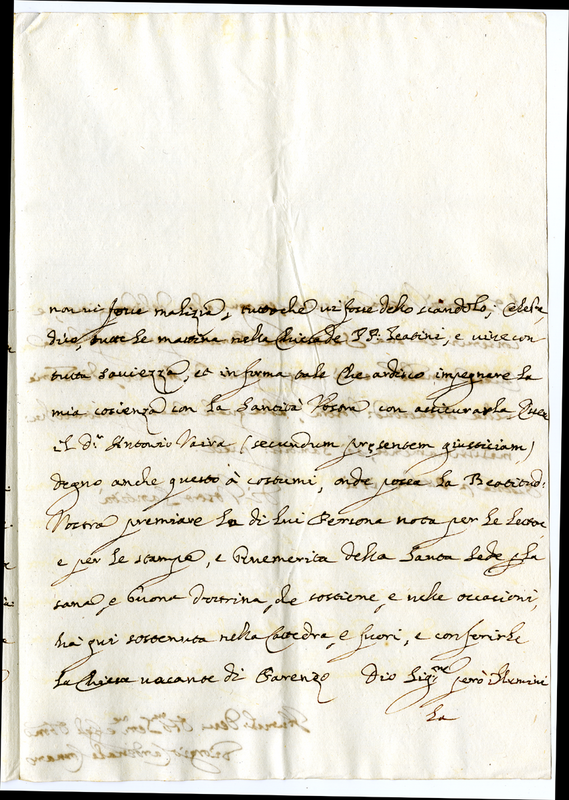 non vi fosse malizia, tutto che vi fosse dello scandolo; Celebra
dico, tutte le mattina nella Chiesa de PP. Teatini, e vive con
tutta saviezza, et in forma tale che ardisco impegnare la
mia coscienza con la Santità Vostra con assicurarla esser
il D.r Antonio Vaira (secundum presentem giustitiam)
degno anche questo à costumi, onde possa la Beatitud:
Vostra premiare la di lui Persona nota per le letture
e per le stampe, e benemerita della Santa Sede p la
sana, e buona dottrina, che sostiene, e nelle occasioni,
hà qui sostenuta nella Cattedra, e fuori, e conferirle
la Chiesa vacante di Parenzo Dio Sig.re però illumini
la